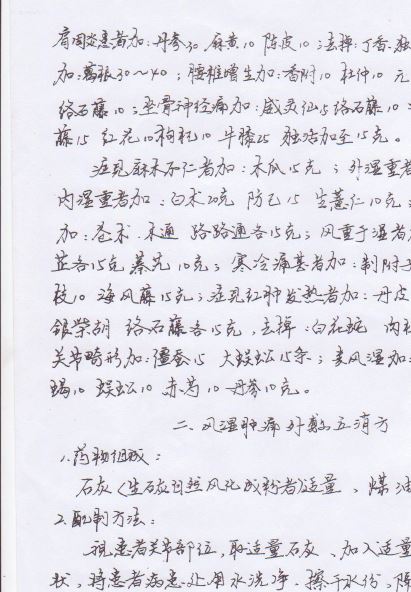 肩周炎患者加:丹参30 麻黄10 陈皮10;去掉:丁香.独
加:葛根30~40;腰椎增生加:香附10 杜仲10 元
络石藤10;坐骨神经痛加:威灵仙15络石藤10
藤15 红花10枸杞10 牛膝25 独活加至15克。
症见麻木不仁者加:木瓜15克;外湿重者
内湿重者加:白术20克 防己15 生薏仁10克
加:苍术.木通 路路通各15克;风重于湿者
芷各15克 秦艽10克;寒冷痛甚者加:制附子
枝10 海风藤15克;症见红肿发热者加:丹皮
银柴胡 络石藤各15克,去掉:白花蛇 肉桂
关节畸形加:僵蚕15 大蜈蚣15条;类风湿加:
蝎10 蜈蚣10 赤芍10 丹参10克。
二、风湿肿痛外敷五消方
1.药物组成:
石灰(生石灰自然风化成粉者)适量、煤油
2.配制方法:
视患者关节部位,取适量石灰、加入适量
状,将患者病患处用水洗净.擦干水份,